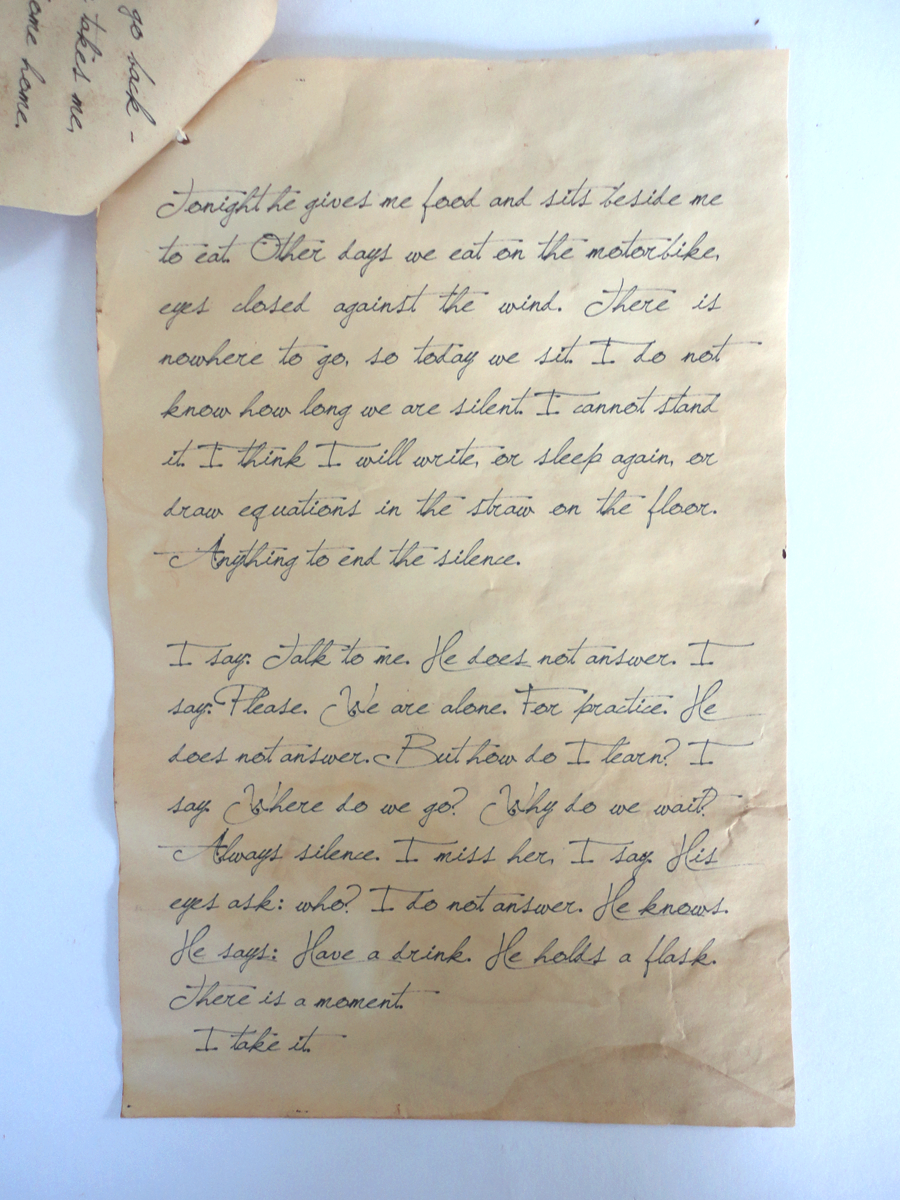 go back -
takes me,
ome home.
Tonight he gives me food and sits beside me
to eat. Other days we eat on the motorbike,
eyes closed against the wind. There is
nowhere to go, so today we sit. I do not
know how long we are silent. I cannot stand
it. I think I will write, or sleep again, or
draw equations in the straw on the floor.
Anything to end the silence.
I say: Talk to me. He does not answer. I
say: Please. We are alone. For practice. He
does not answer. But how do I learn? I
say. Where do we go? Why do we wait?
Always silence. I miss her, I say. His
eyes ask: who? I do not answer. He knows.
He says: Have a drink. He holds a flask.
There is a moment.
I take it.